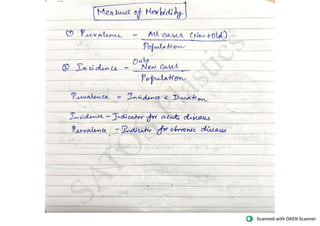 Measures of Morbidity
① Prevalence - All cases (New + Old)
Population
② Incidence - Only New Cases
Population
Prevalence = Incidence x Duration
Incidence - Indicator for acute diseases
Prevalence - Indicator for chronic diseases
Scanned with OKEN Scanner